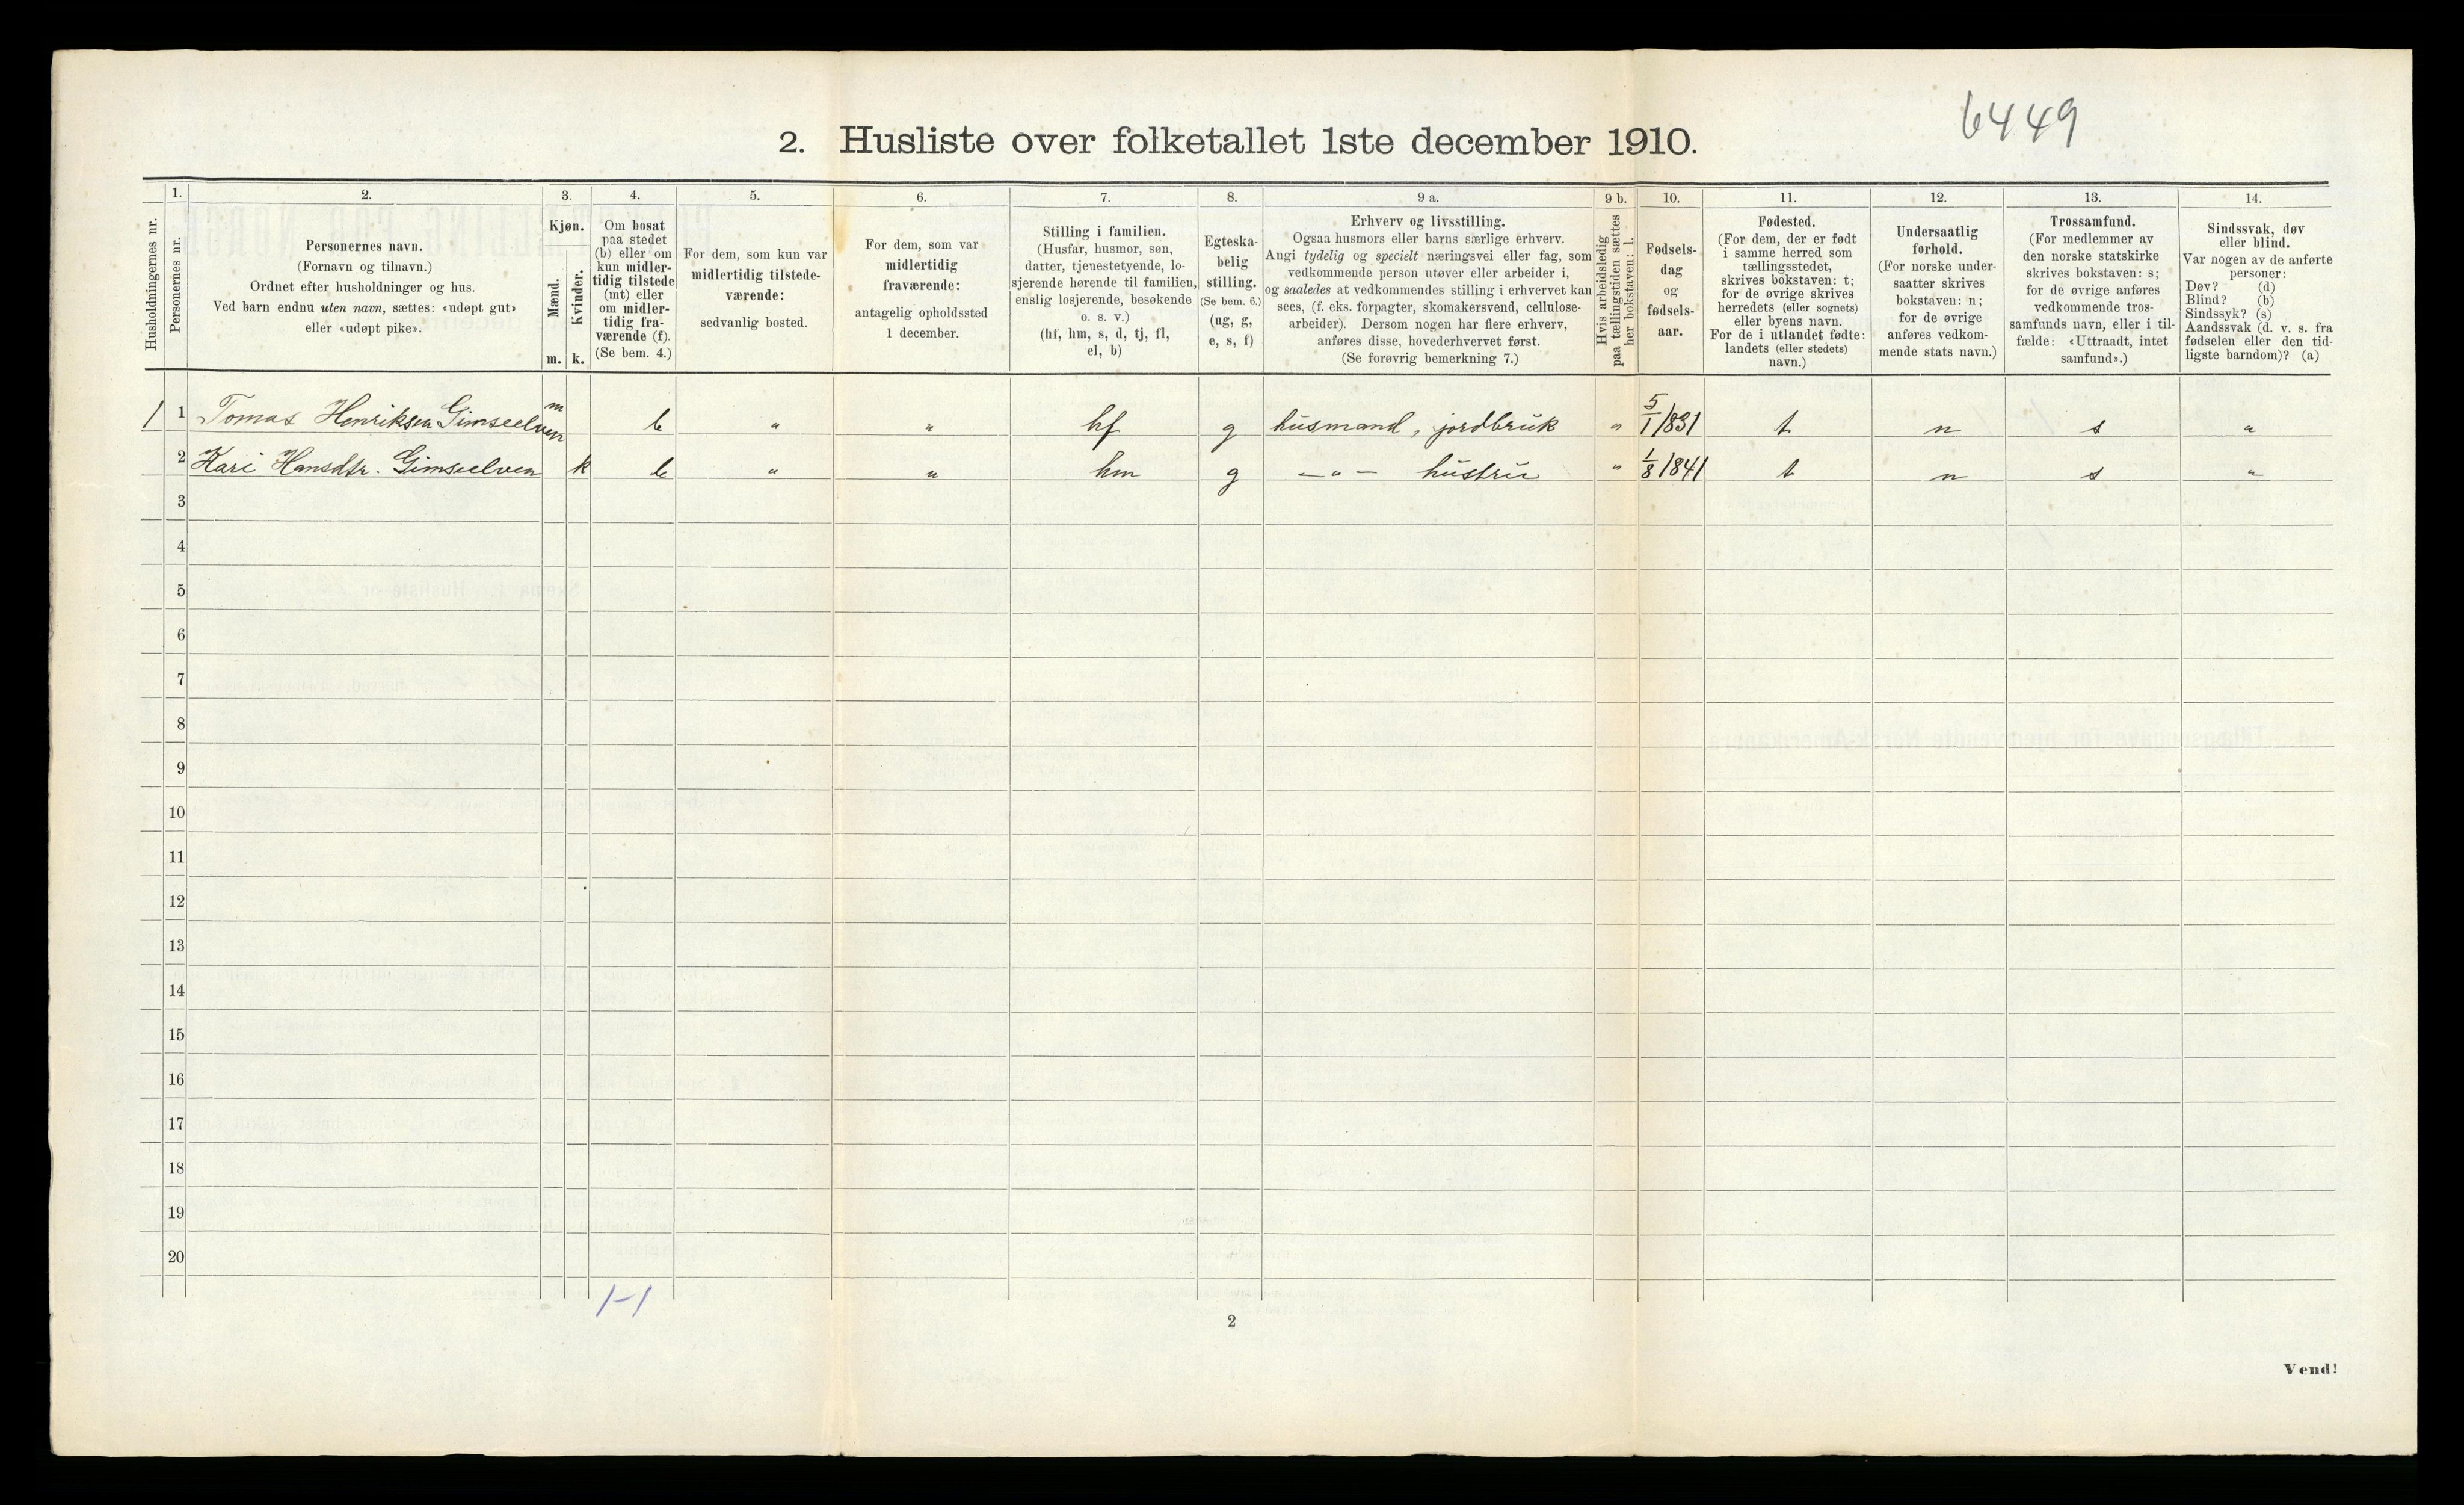 6449
2. Husliste over folketallet 1ste december 1910.
Husholdningernes nr.
1.
Personernes nr.
2.
Personernes navn.
(Fornavn og tilnavn.)
Ordnet efter husholdninger og hus.
Ved barn endnu uten navn, sættes: «udøpt gut»
eller «udøpt pike».
3.
Kjøn.
Mænd.
m.
Kvinder.
k.
4.
Om bosat
paa stedet
(b) eller om
kun midler-
tidig tilstede
(mt) eller
om midler-
tidig fra-
værende (f).
(Se bem. 4.)
5.
For dem, som kun var
midlertidig tilstede-
værende:
sedvanlig bosted.
6.
For dem, som var
midlertidig
fraværende:
antagelig opholdssted
1 december.
7.
Stilling i familien.
(Husfar, husmor, søn,
datter, tjenestetyende, lo-
sjerende hørende til familien,
enslig losjerende, besøkende
o. s. v.)
(hf, hm, s, d, tj, fl,
el, b)
8.
Egteska-
belig
stilling.
(Se bem. 6.)
(ug, g,
e, s, f)
9 a.
Erhverv og livsstilling.
Ogsaa husmors eller barns særlige erhverv.
Angi tydelig og specielt næringsvei eller fag, som
vedkommende person utøver eller arbeider i,
og saaledes at vedkommendes stilling i erhvervet kan
sees, (f. eks. forpagter, skomakersvend, cellulose-
arbeider). Dersom nogen har flere erhverv,
anføres disse, hovederhvervet først.
(Se forøvrig bemerkning 7.)
9 b.
Hvis arbeidsledig
paa tællingstiden sættes
her bokstaven: l.
10.
Fødsels-
dag
og
fødsels-
aar.
11.
Fødested.
(For dem, der er født
i samme herred som
tællingsstedet,
skrives bokstaven: t;
for de øvrige skrives
herredets (eller sognets)
eller byens navn.
For de i utlandet fødte:
landets (eller stedets)
navn.)
12.
Undersaatlig
forhold.
(For norske under-
saatter skrives
bokstaven: n;
for de øvrige
anføres vedkom-
mende stats navn.)
13.
Trossamfund.
(For medlemmer av
den norske statskirke
skrives bokstaven: s;
for de øvrige anføres
vedkommende tros-
samfunds navn, eller i til-
fælde: «Uttraadt, intet
samfund».)
14.
Sindssvak, døv
eller blind.
Var nogen av de anførte
personer:
Døv? (d)
Blind? (b)
Sindssyk? (s)
Aandssvak (d. v. s. fra
fødselen eller den tid-
ligste barndom)? (a)
1 1 Tomas Henriksen Gimseelven m b " " hf g husmand, jordbruk " 5/1 1831 t n s "
2 Kari Hansdtr. Gimseelven k b " " hm g —"— hustru " 1/8 1841 t n s "
3
4
5
6
7
8
9
10
11
12
13
14
15
16
17
18
19
20
1-1
2
Vend!